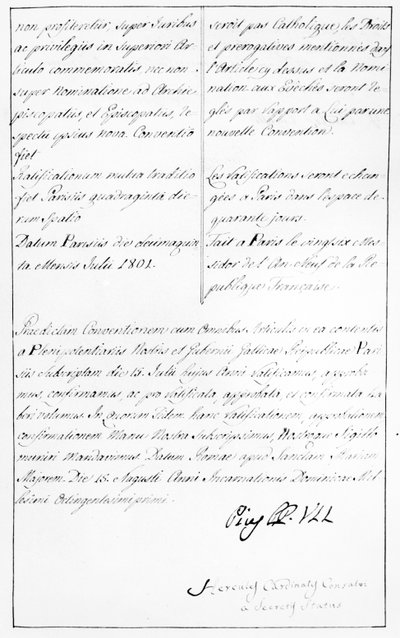 non profiteretur, super Juribus
ac privilegiis in Superiori Ar-
ticulo commemoratis, nec non
super Nominatione ad Archie-
piscopatus, et Episcopatus, re-
spectu ipsius nova Conventio
fiet
Ratificationum mutua traditio
fiet Parisiis quadraginta die-
rum Spatio
Datum Parisiis die decimaquin-
ta Mensis Julii 1801.
seroit pas Catholique, les Droits
et prerogatives mentionnés dans
l'Article cy dessus et la Nomi-
nation aux Evechés seront re-
glés par rapport a Lui par une
nouvelle Convention.
Les Ratifications seront echan-
gées a Paris dans l'espace de
quarante jours.
Fait a Paris le vingt six Mes-
sidor de l'An Neuf de la Re-
publique Française.
Praedictam Conventionem cum Omnibus Articulis in ea contentis
a Plenipotentiariis Nostris et Gubernii Gallicae Reipublicae Pari-
siis Subscriptam die 15. Julii hujus Anni ratificamus, approba-
mus, confirmamus, ac pro ratificata, approbata, et confirmata ha-
beri volumus. In quorum fidem hanc ratificationem, approbationem
confirmationem Manu Nostra Subscripsimus, Nostroque Sigillo
muniri Mandavimus. Datum Romae apud Sanctam Mariam
Majorem Die 15. Augusti Anni Incarnationis Dominicae Mil-
lesimi Octingentesimi primi.
Pius PP. VII.
Hercules Cardinalis Consalvi
a Secretis Status